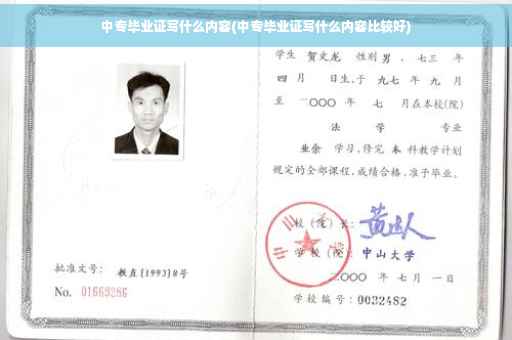 中专毕业证写什么内容(中专毕业证写什么内容比较好)
学生 贺文龙 性别 男 、七三 年
四 月 日生,于 九七 年 九 月
至 二〇〇〇 年 七 月在本校(院)
法 学 专业
业余 学习,修完 本 科教学计划
规定的全部课程,成绩合格,准予毕业。
校(院)长:
学校(院): 中山大学
二〇〇〇 年 七 月 一 日
学校编号: 0032482
批准文号: 教直[1993]8号
No. 01669286